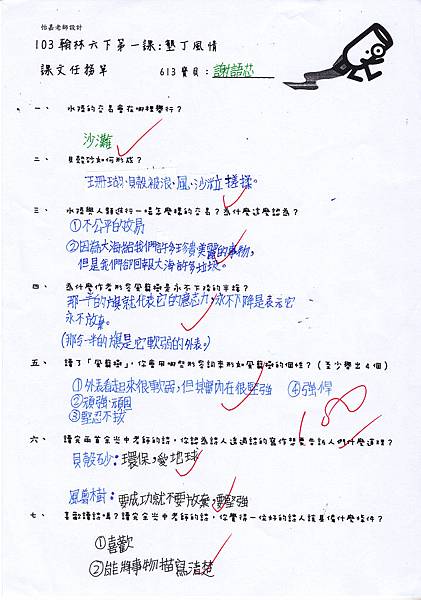 怡嘉老師設計
103翰林六下第一課:墾丁風情
課文任務單 613寶貝:謝語芯
一、 水陸的交易會在哪裡舉行?
沙灘
二、 貝殼砂如何形成?
珊瑚、貝殼被浪、風、沙粒搓揉。
三、 水陸與人類進行一場怎麼樣的交易?為什麼這麼認為?
①不公平的放易
②因為大海給我們許多珍貴美麗的事物,
但是我們卻回報大海許多垃圾。
四、 為什麼作者形容風剪樹是永不下降的半旗?
那一半的旗就代表它的意志力,永不下降是表示它
永不放棄。
(那另一半的旗是它軟弱的外表。)
五、 讀了「風剪樹」,你會用哪些形容詞來形如風剪樹的個性?(至少舉出4個)
①外表看起來很軟弱,但其實內在很堅強 ④強悍
②頑強、頑固
③堅忍不拔
100
六、 讀完兩首余光中老師的詩,你認為詩人透過詩的寫作想要告訴人們什麼道理?
貝殼砂:環保,愛地球
風剪樹:要成功就不要放棄,要堅強
七、 喜歡讀詩嗎?讀完余光中老師的詩,你覺得一位好的詩人該具備什麼條件?
①喜歡
②能將事物描寫清楚